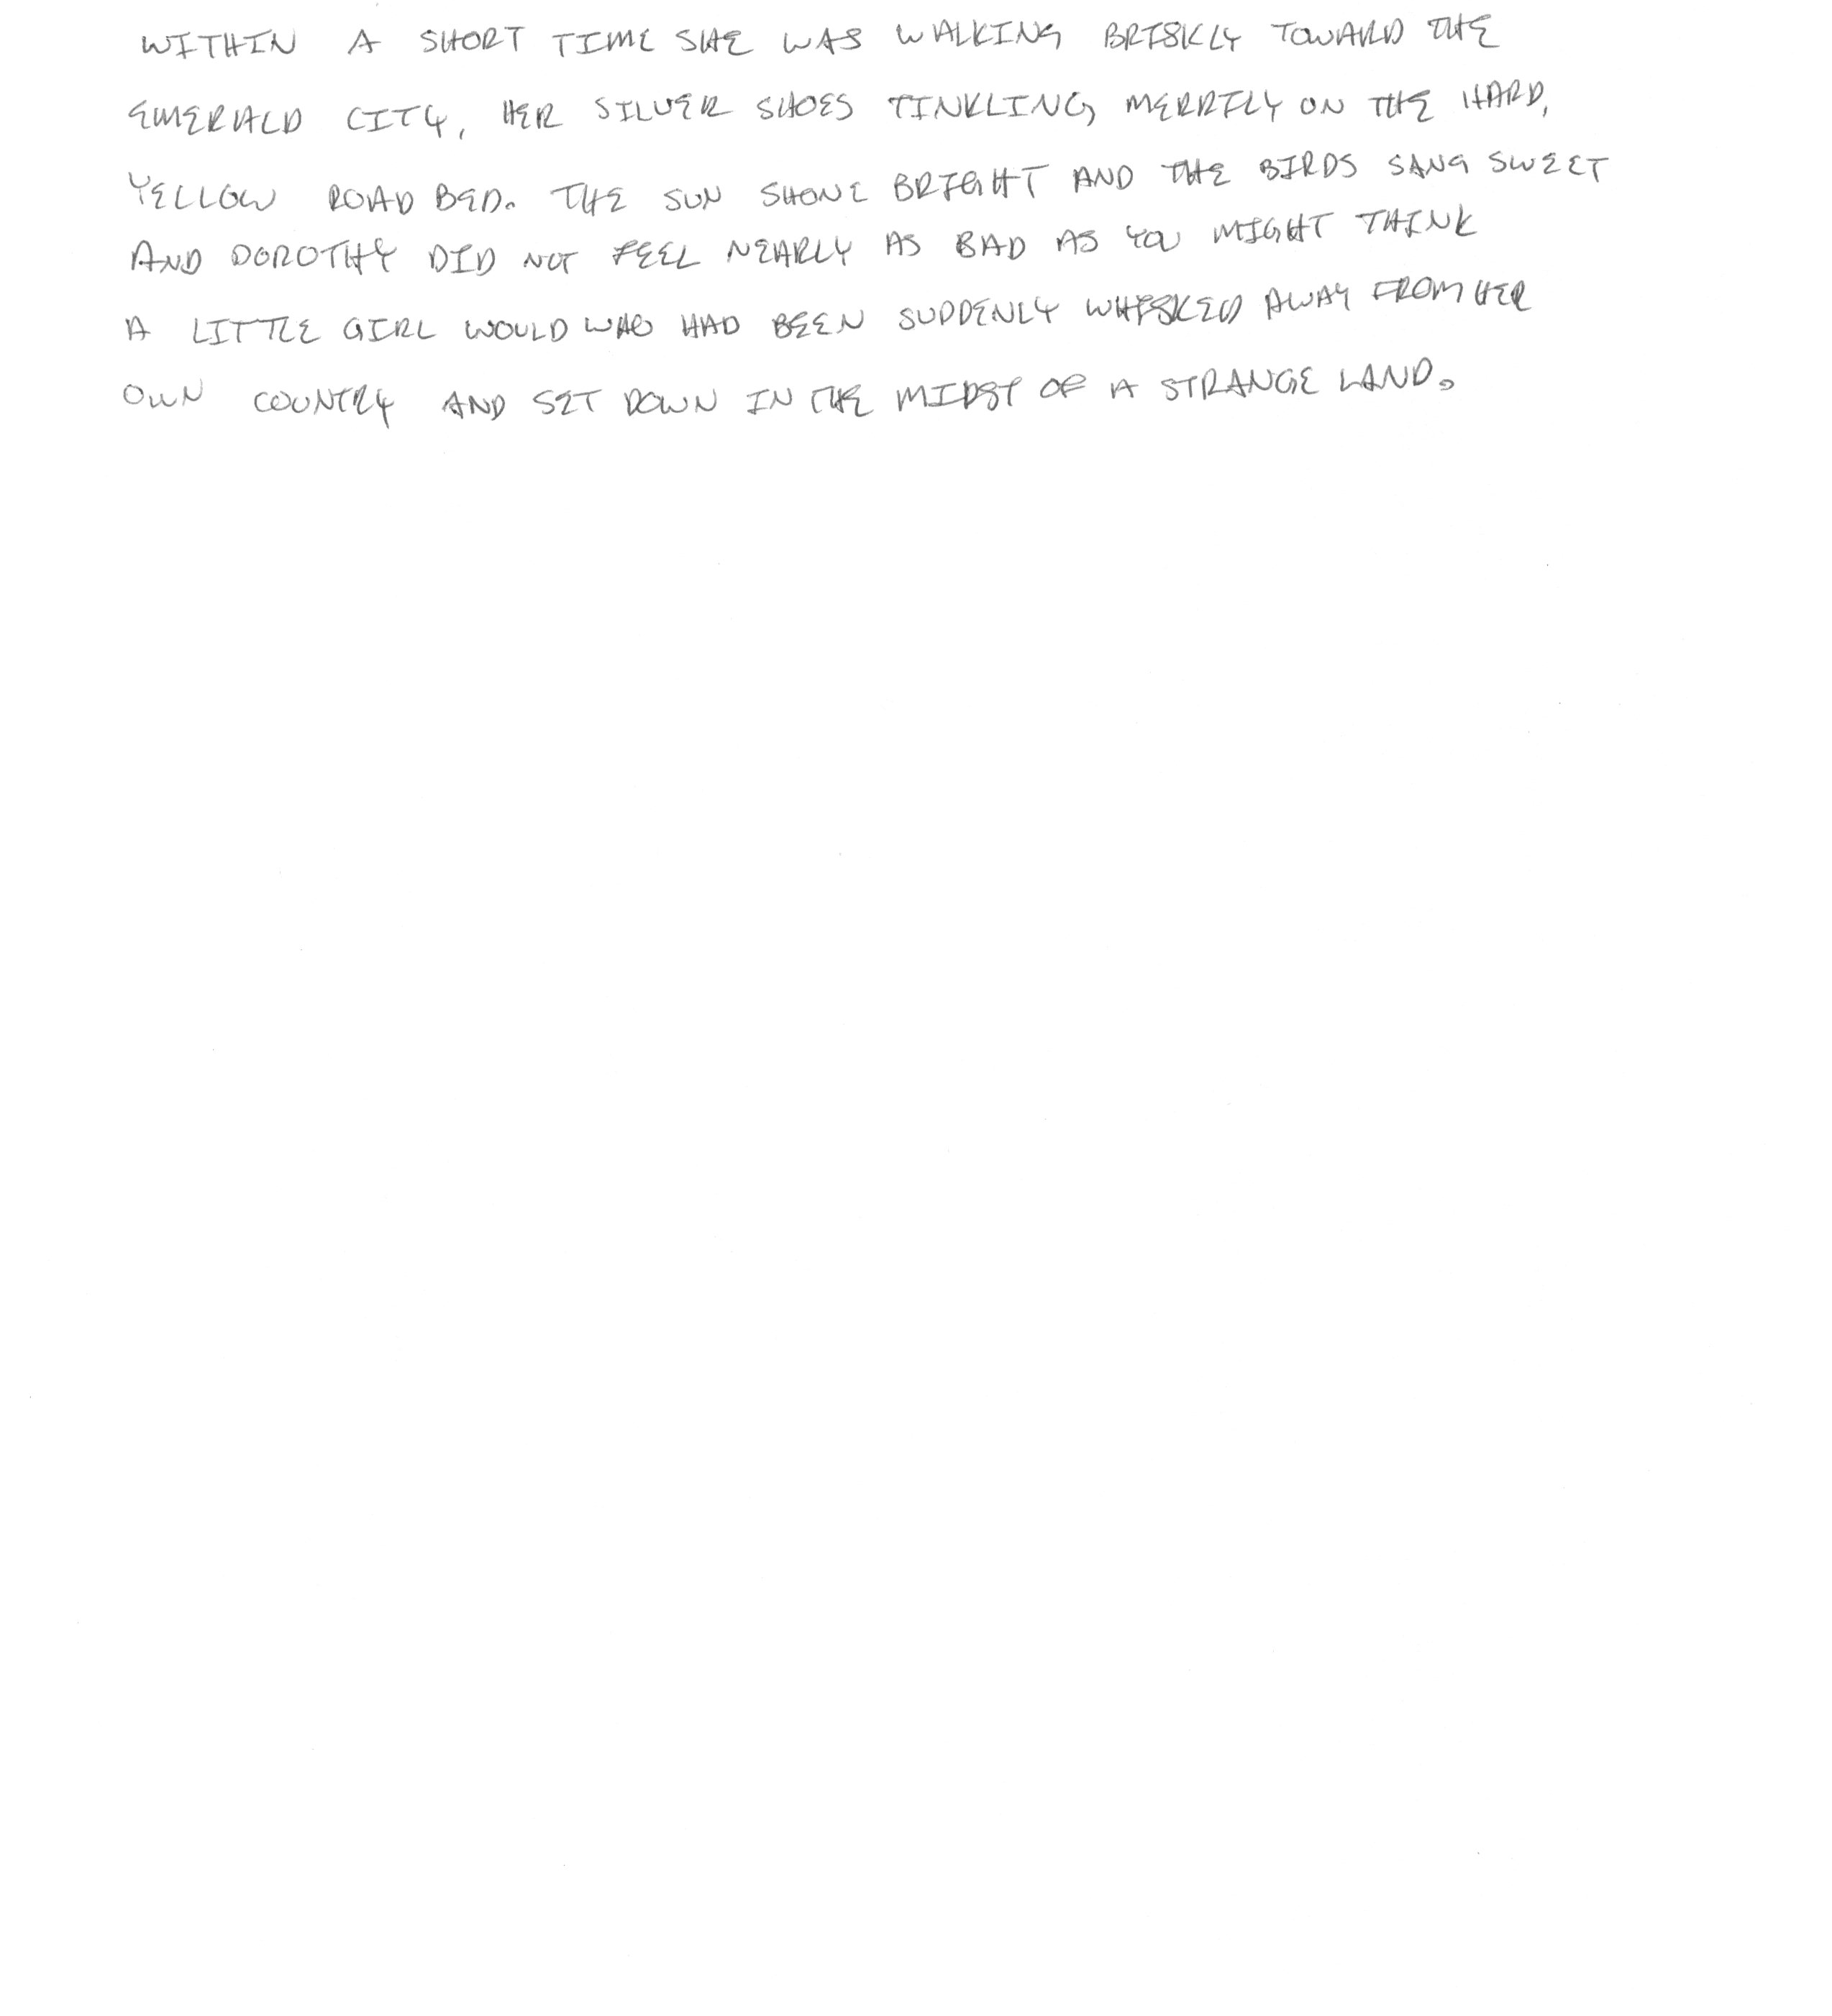 WITHIN A SHORT TIME SHE WAS WALKING BRISKLY TOWARD THE
EMERALD CITY, HER SILVER SHOES TINKLING MERRILY ON THE HARD,
YELLOW ROAD BED. THE SUN SHONE BRIGHT AND THE BIRDS SANG SWEET
AND DOROTHY DID NOT FEEL NEARLY AS BAD AS YOU MIGHT THINK
A LITTLE GIRL WOULD WHO HAD BEEN SUDDENLY WHISKED AWAY FROM HER
OWN COUNTRY AND SET DOWN IN THE MIDST OF A STRANGE LAND.